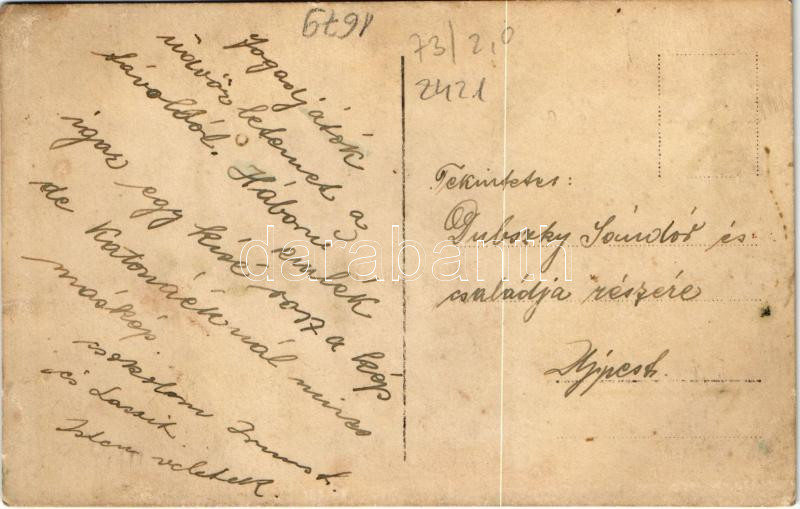 1679
73/2,0
2421
Fogadjátok
üdvözletemet az
távolból. Háború emlék
igaz egy kisé rosz a kép
de Katonáéknál nincs
máskép.
csokolom
és Laszit.
Isten veletek.
Tekintetes:
Dubszky Sándór és
családja részére
Ujpest.
darabanth